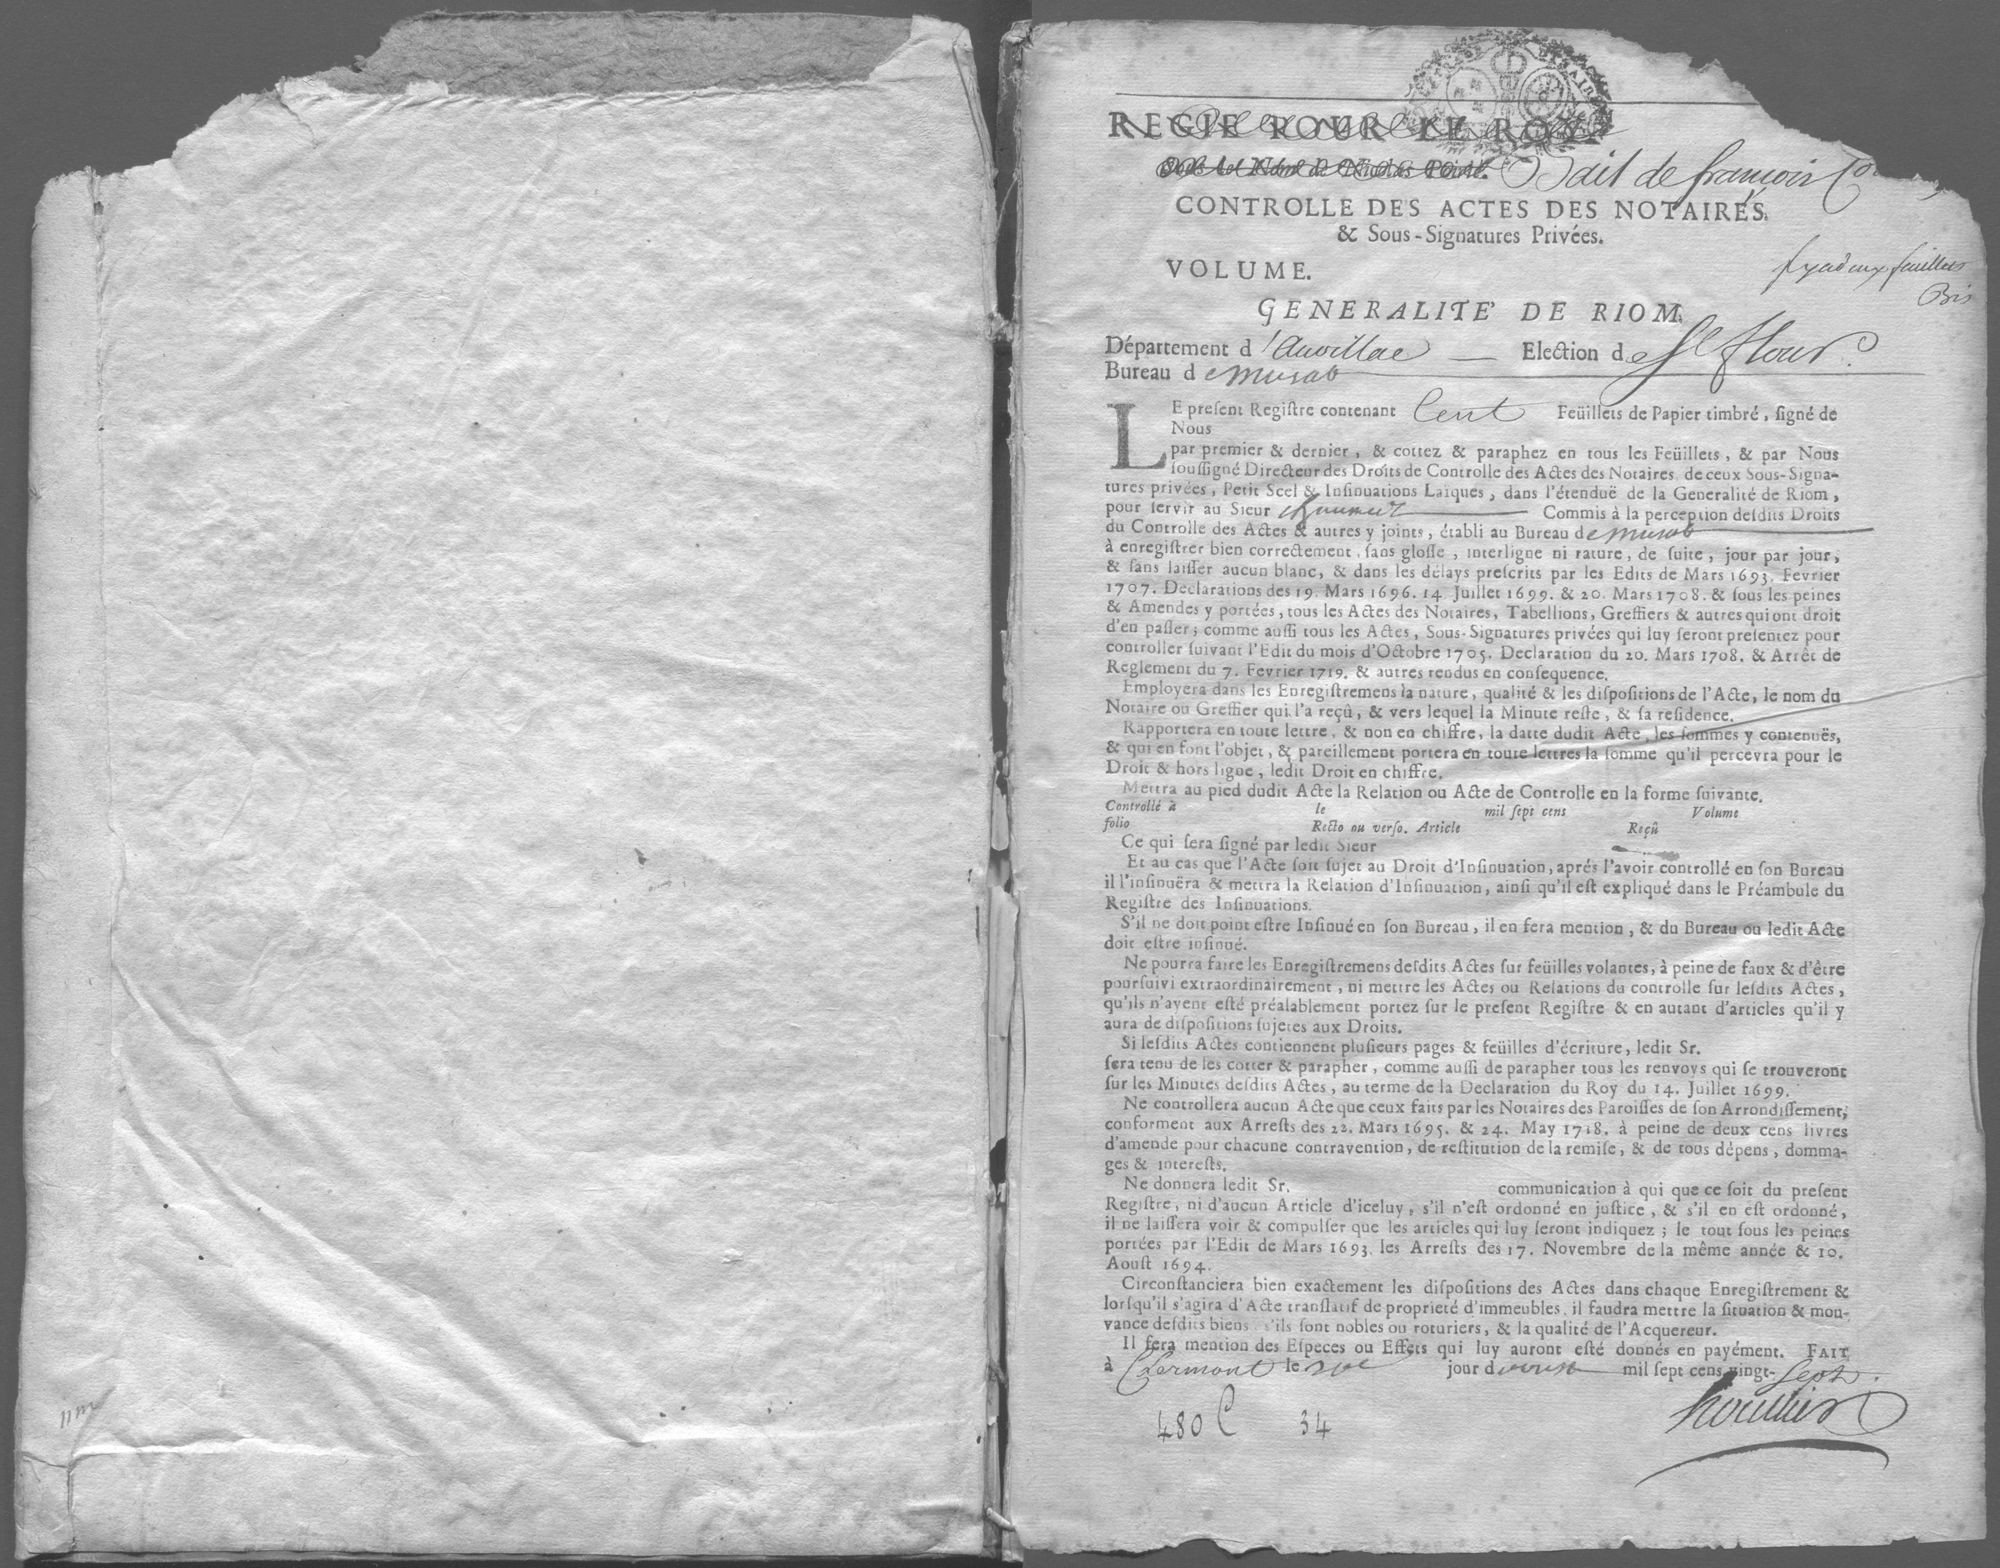 REGIE POUR LE ROY
Bail de françois
CONTROLLE DES ACTES DES NOTAIRES,
& Sous-Signatures Privées.
VOLUME.
feuillets
Bis
GENERALITE' DE RIOM,
Département d'Auvillac — Election de St flour.
Bureau de murat
LE present Registre contenant Cent Feüillets de Papier timbré, signé de
Nous
par premier & dernier, & cottez & paraphez en tous les Feüillets, & par Nous
soussigné Directeur des Droits de Controlle des Actes des Notaires, de ceux Sous-Signa-
tures privées, Petit Scel & Insinuations Laïques, dans l'étenduë de la Generalité de Riom,
pour servir au Sieur Commis à la perception desdits Droits
du Controlle des Actes & autres y joints, établi au Bureau de murat
à enregistrer bien correctement, sans glosse, interligne ni rature, de suite, jour par jour,
& sans laisser aucun blanc, & dans les délays prescrits par les Edits de Mars 1693. Fevrier
1707. Declarations des 19. Mars 1696. 14. Juillet 1699. & 20. Mars 1708. & sous les peines
& Amendes y portées, tous les Actes des Notaires, Tabellions, Greffiers & autres qui ont droit
d'en passer; comme aussi tous les Actes, Sous-Signatures privées qui luy seront presentez pour
controller suivant l'Edit du mois d'Octobre 1705. Declaration du 20. Mars 1708. & Arrêt de
Reglement du 7. Fevrier 1719. & autres rendus en consequence.
Employera dans les Enregistremens la nature, qualité & les dispositions de l'Acte, le nom du
Notaire ou Greffier qui l'a reçû, & vers lequel la Minute reste, & sa residence.
Rapportera en toute lettre, & non en chiffre, la datte dudit Acte, les sommes y contenuës,
& qui en font l'objet, & pareillement portera en toute lettres la somme qu'il percevra pour le
Droit & hors ligne, ledit Droit en chiffre.
Mettra au pied dudit Acte la Relation ou Acte de Controlle en la forme suivante.
Controllé à le mil sept cens Volume
folio Recto ou verso. Article Reçû
Ce qui sera signé par ledit Sieur
Et au cas que l'Acte soit sujet au Droit d'Insinuation, aprés l'avoir controllé en son Bureau
il l'insinuëra & mettra la Relation d'Insinuation, ainsi qu'il est expliqué dans le Préambule du
Registre des Insinuations.
S'il ne doit point estre Insinué en son Bureau, il en fera mention, & du Bureau ou ledit Acte
doit estre insinué.
Ne pourra faire les Enregistremens desdits Actes sur feüilles volantes, à peine de faux & d'être
poursuivi extraordinairement, ni mettre les Actes ou Relations du controlle sur lesdits Actes,
qu'ils n'ayent esté préalablement portez sur le present Registre & en autant d'articles qu'il y
aura de dispositions sujetes aux Droits.
Si lesdits Actes contiennent plusieurs pages & feüilles d'écriture, ledit Sr.
sera tenu de les cotter & parapher, comme aussi de parapher tous les renvoys qui se trouveront
sur les Minutes desdits Actes, au terme de la Declaration du Roy du 14. Juillet 1699.
Ne controllera aucun Acte que ceux faits par les Notaires des Paroisses de son Arrondissement,
conforment aux Arrests des 22. Mars 1695. & 24. May 1718. à peine de deux cens livres
d'amende pour chacune contravention, de restitution de la remise, & de tous dépens, domma-
ges & interests.
Ne donnera ledit Sr. communication à qui que ce soit du present
Registre, ni d'aucun Article d'iceluy, s'il n'est ordonné en justice, & s'il en est ordonné,
il ne laissera voir & compulser que les articles qui luy seront indiquez; le tout sous les peines
portées par l'Edit de Mars 1693. les Arrests des 17. Novembre de la même année & 10.
Aoust 1694.
Circonstanciera bien exactement les dispositions des Actes dans chaque Enregistrement &
lorsqu'il s'agira d'Acte translatif de proprieté d'immeubles, il faudra mettre la situation & mou-
vance desdits biens s'ils sont nobles ou roturiers, & la qualité de l'Acquereur.
Il fera mention des Especes ou Effets qui luy auront esté donnés en payément. FAIT
à Clermont le jour d mil sept cens vingt-sept.
480 C 34